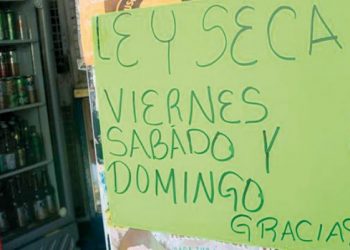 LEY SECA
VIERNES
SABADO Y
DOMINGO
GRACIAS